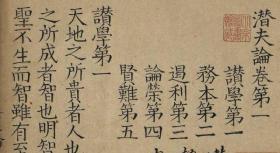 潜夫論卷第一
讃學第一
務本第二
遏利第三
論榮第四
賢難第五
讃學第一
天地之所貴者人也
之所成者智也明智
聖不生而智雖有